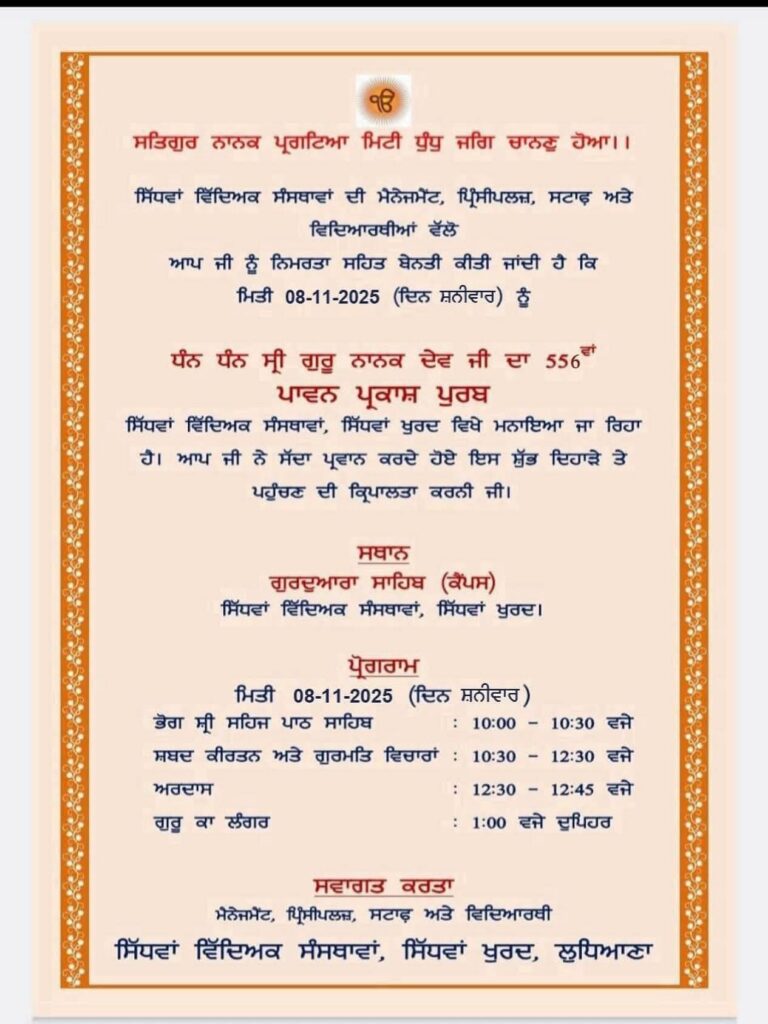 ੴ
ਸਤਿਗੁਰ ਨਾਨਕ ਪ੍ਰਗਟਿਆ ਮਿਟੀ ਧੁੰਧੁ ਜਗਿ ਚਾਨਣੁ ਹੋਆ।।
ਸਿੱਧਵਾਂ ਵਿੱਦਿਅਕ ਸੰਸਥਾਵਾਂ ਦੀ ਮੈਨੇਜਮੈਂਟ, ਪ੍ਰਿੰਸੀਪਲਜ਼, ਸਟਾਫ਼ ਅਤੇ
ਵਿਦਿਆਰਥੀਆਂ ਵੱਲੋ
ਆਪ ਜੀ ਨੂੰ ਨਿਮਰਤਾ ਸਹਿਤ ਬੇਨਤੀ ਕੀਤੀ ਜਾਂਦੀ ਹੈ ਕਿ
ਮਿਤੀ 08-11-2025 (ਦਿਨ ਸ਼ਨੀਵਾਰ) ਨੂੰ
ਧੰਨ ਧੰਨ ਸ੍ਰੀ ਗੁਰੂ ਨਾਨਕ ਦੇਵ ਜੀ ਦਾ 556ਵਾਂ
ਪਾਵਨ ਪ੍ਰਕਾਸ਼ ਪੁਰਬ
ਸਿੱਧਵਾਂ ਵਿੱਦਿਅਕ ਸੰਸਥਾਵਾਂ, ਸਿੱਧਵਾਂ ਖੁਰਦ ਵਿਖੇ ਮਨਾਇਆ ਜਾ ਰਿਹਾ
ਹੈ। ਆਪ ਜੀ ਨੇ ਸੱਦਾ ਪ੍ਰਵਾਨ ਕਰਦੇ ਹੋਏ ਇਸ ਸ਼ੁੱਭ ਦਿਹਾੜੇ ਤੇ
ਪਹੁੰਚਣ ਦੀ ਕ੍ਰਿਪਾਲਤਾ ਕਰਨੀ ਜੀ।
ਸਥਾਨ
ਗੁਰਦੁਆਰਾ ਸਾਹਿਬ (ਕੈਂਪਸ)
ਸਿੱਧਵਾਂ ਵਿੱਦਿਅਕ ਸੰਸਥਾਵਾਂ, ਸਿੱਧਵਾਂ ਖੁਰਦ।
ਪ੍ਰੋਗਰਾਮ
ਮਿਤੀ 08-11-2025 (ਦਿਨ ਸ਼ਨੀਵਾਰ)
ਭੋਗ ਸ਼੍ਰੀ ਸਹਿਜ ਪਾਠ ਸਾਹਿਬ : 10:00 – 10:30 ਵਜੇ
ਸ਼ਬਦ ਕੀਰਤਨ ਅਤੇ ਗੁਰਮਤਿ ਵਿਚਾਰਾਂ : 10:30 – 12:30 ਵਜੇ
ਅਰਦਾਸ : 12:30 – 12:45 ਵਜੇ
ਗੁਰੂ ਕਾ ਲੰਗਰ : 1:00 ਵਜੇ ਦੁਪਿਹਰ
ਸਵਾਗਤ ਕਰਤਾ
ਮੈਨੇਜਮੈਂਟ, ਪ੍ਰਿੰਸੀਪਲਜ਼, ਸਟਾਫ਼ ਅਤੇ ਵਿਦਿਆਰਥੀ
ਸਿੱਧਵਾਂ ਵਿੱਦਿਅਕ ਸੰਸਥਾਵਾਂ, ਸਿੱਧਵਾਂ ਖੁਰਦ, ਲੁਧਿਆਣਾ